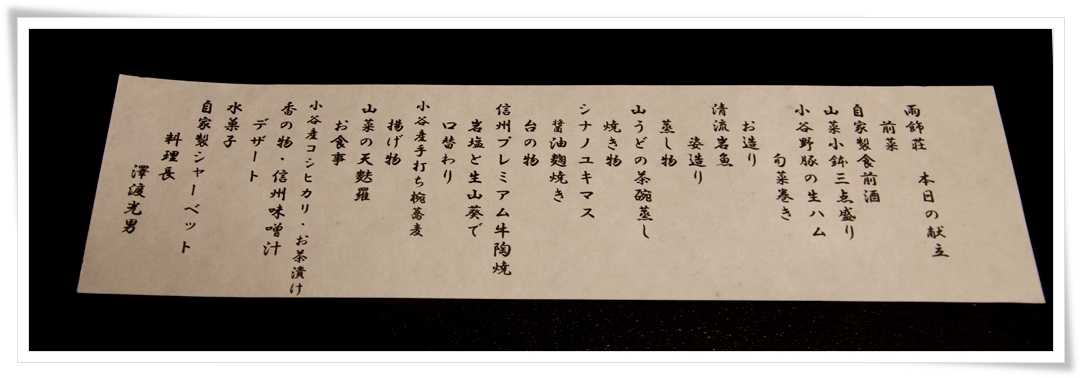 雨飾荘　本日の献立
前菜
自家製食前酒
山菜小鉢三点盛り
小谷野豚の生ハム
旬菜巻き
お造り
清流岩魚
姿造り
蒸し物
山うどの茶碗蒸し
焼き物
シナノユキマス
醤油麹焼き
台の物
信州プレミアム牛陶焼
岩塩と生山葵で
口替わり
小谷産手打ち椀蕎麦
揚げ物
山菜の天麩羅
お食事
小谷産コシヒカリ・お茶漬け
香の物・信州味噌汁
デザート
水菓子
自家製シャーベット
料理長
澤渡光男